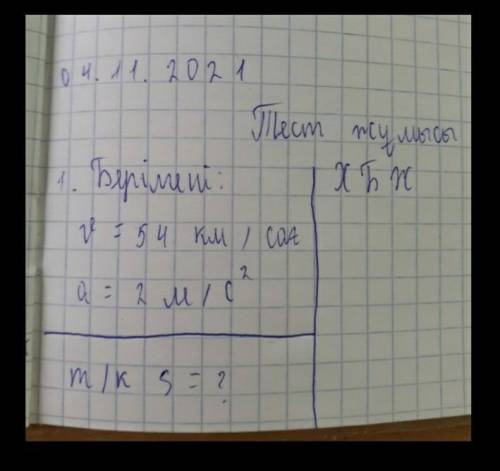 04.11.2021
Тест жұмысы
1. Берілгені: ХБЖ
v = 54 км/сағ
a = 2 м/с²
т/к S = ?